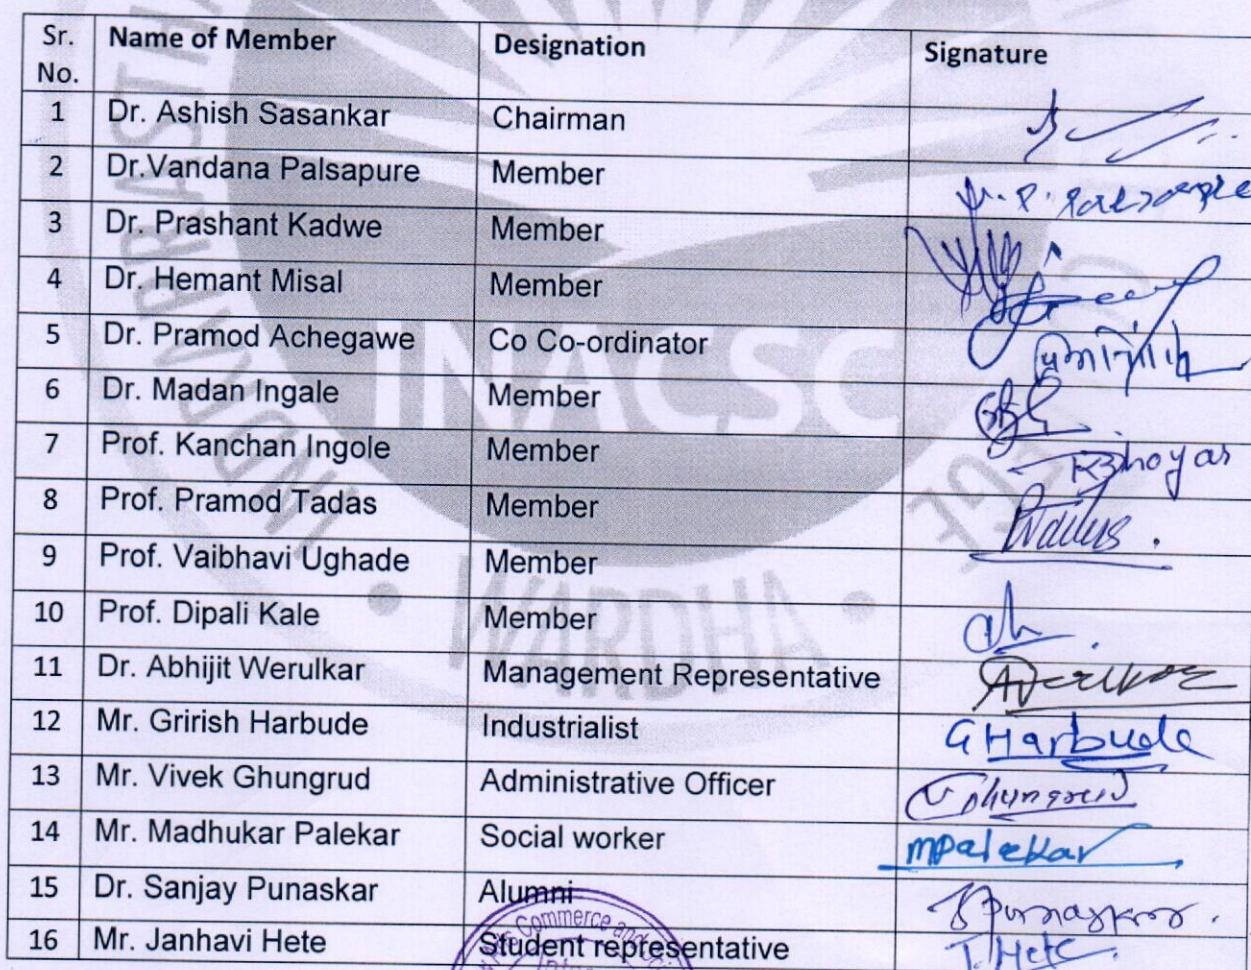 Sr. No. Name of Member Designation Signature
1 Dr. Ashish Sasankar Chairman
2 Dr.Vandana Palsapure Member
3 Dr. Prashant Kadwe Member
4 Dr. Hemant Misal Member
5 Dr. Pramod Achegawe Co Co-ordinator
6 Dr. Madan Ingale Member
7 Prof. Kanchan Ingole Member
8 Prof. Pramod Tadas Member
9 Prof. Vaibhavi Ughade Member
10 Prof. Dipali Kale Member
11 Dr. Abhijit Werulkar Management Representative
12 Mr. Grirish Harbude Industrialist GHarbude
13 Mr. Vivek Ghungrud Administrative Officer
14 Mr. Madhukar Palekar Social worker MPalekar
15 Dr. Sanjay Punaskar Alumni
16 Mr. Janhavi Hete Student representative
INACSC
WARDHA
Commerce and